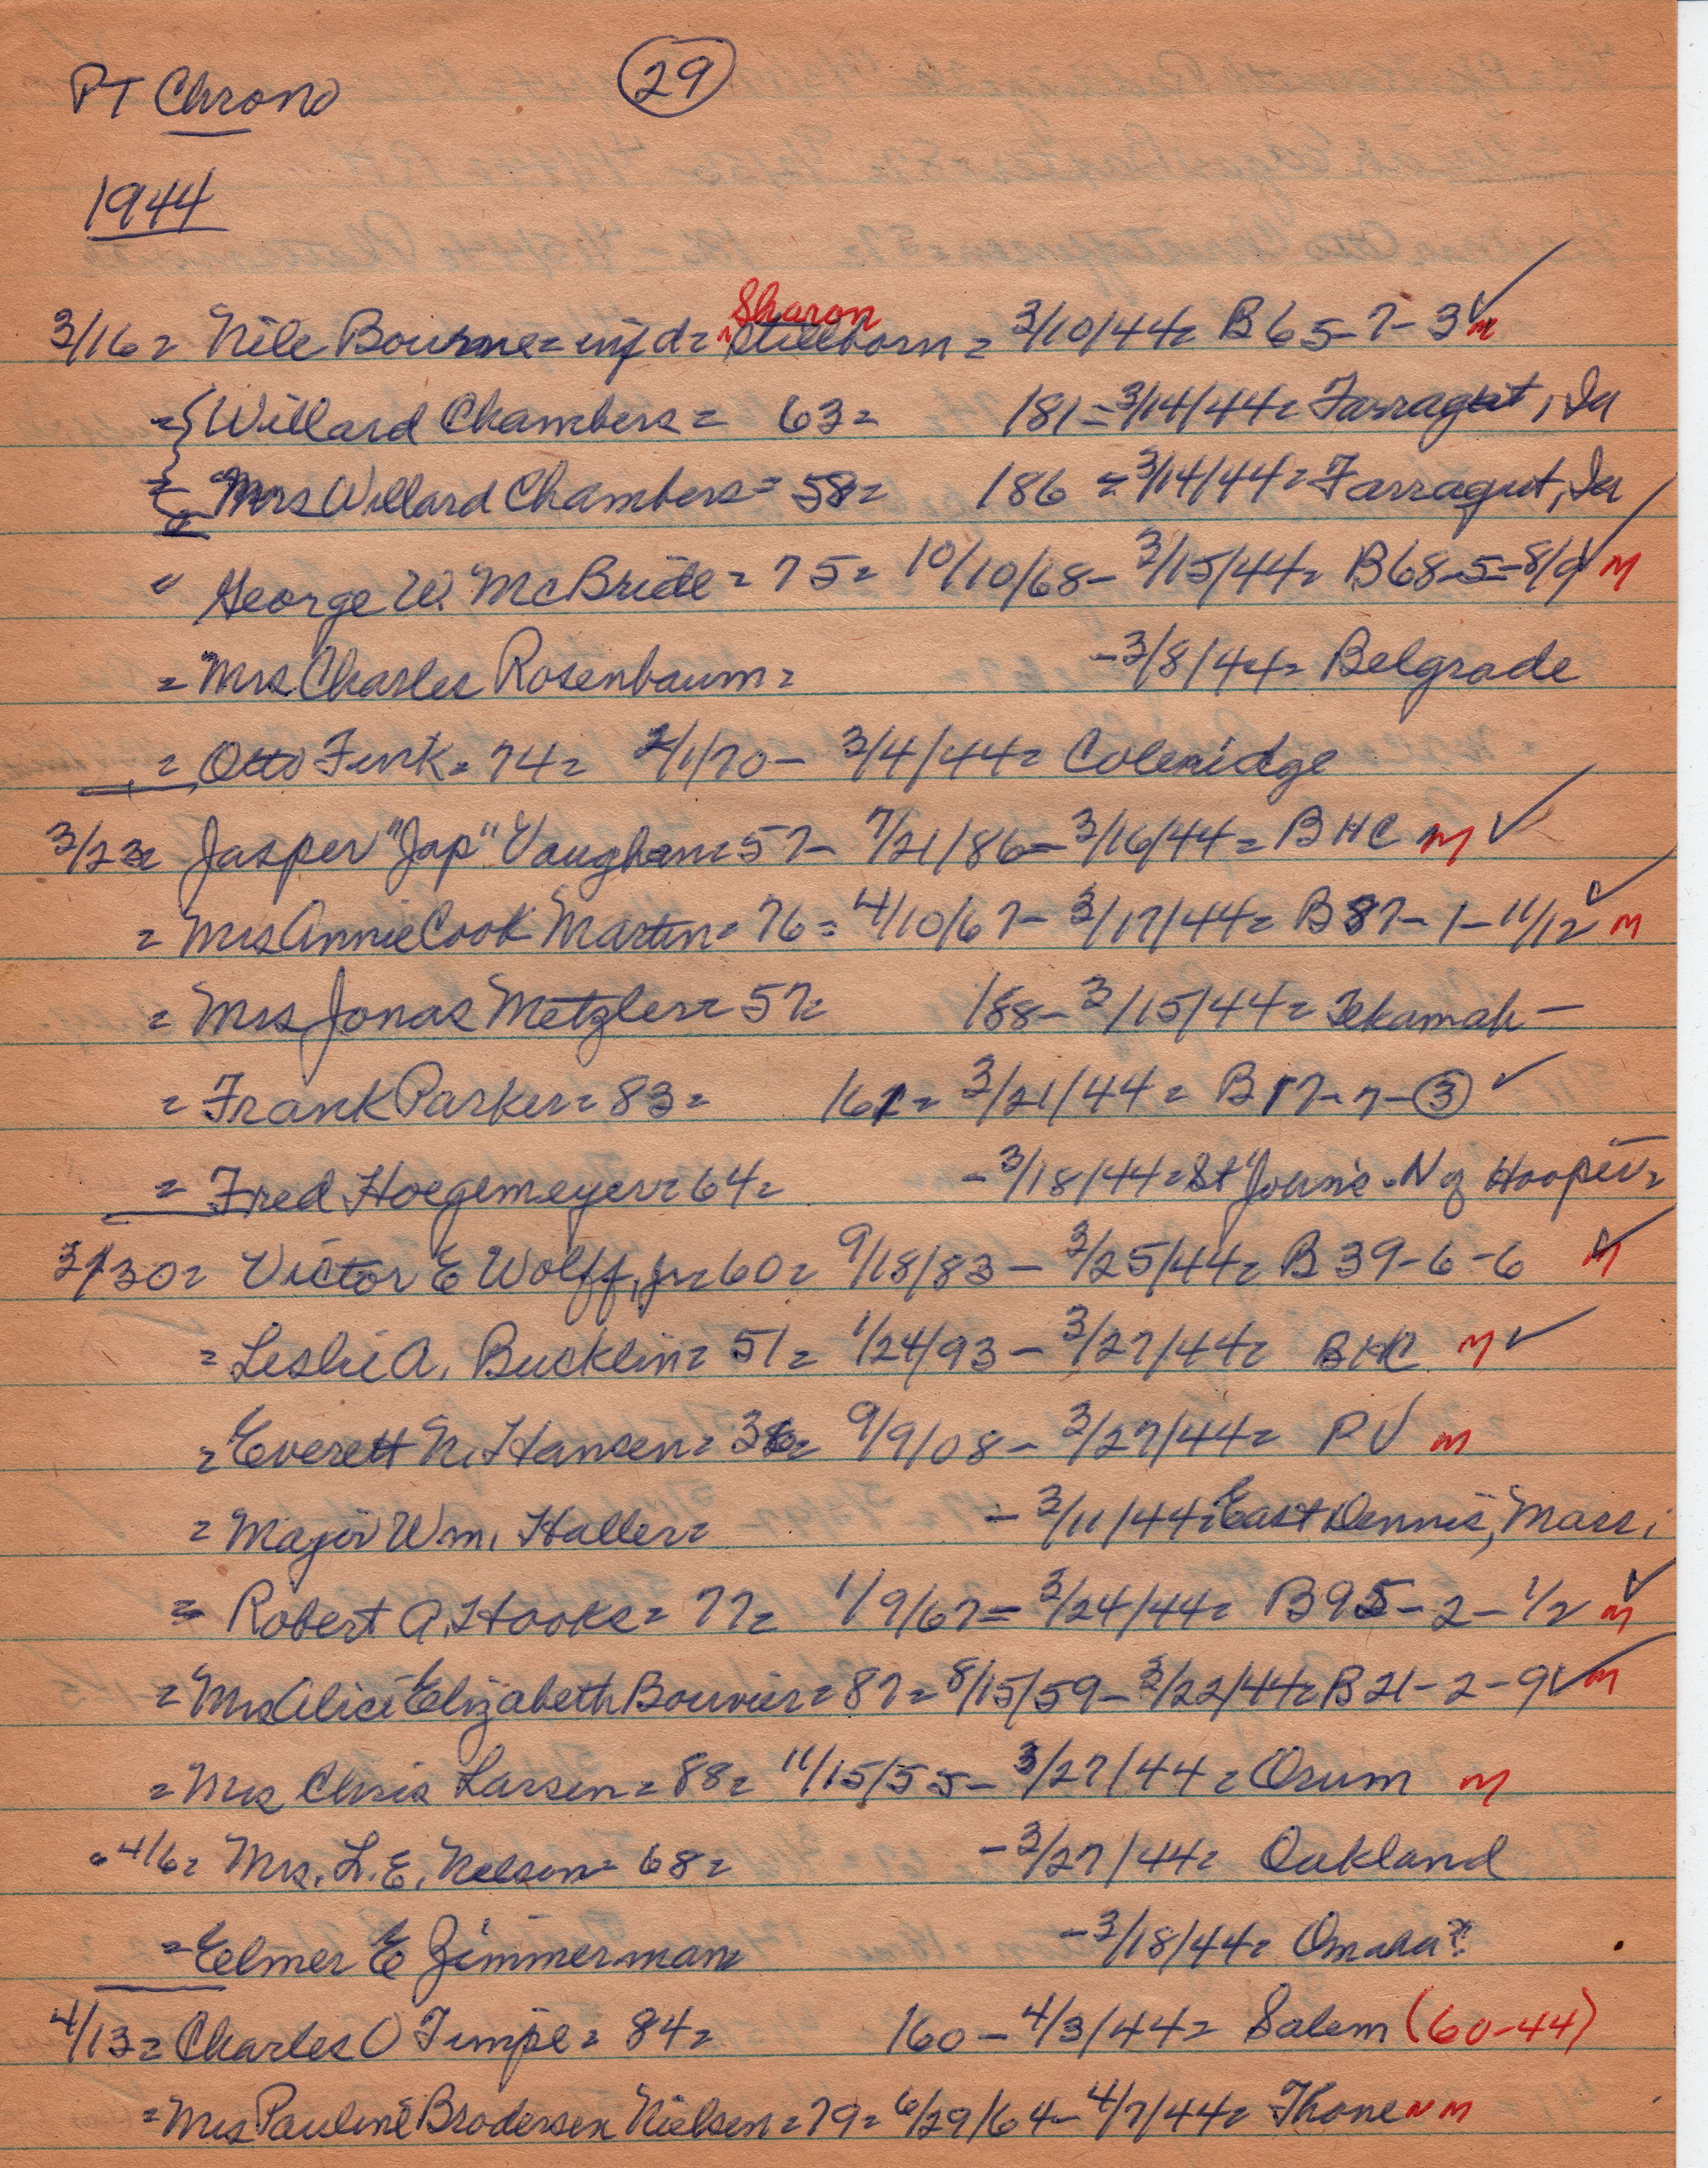 PT Chrono
29
1944
Sharon
3/16 = Nile Bourne = inf d = ^Stillborn = 3/10/44 = B 65-7-3 ✓ m
={ Willard Chambers = 63 = 181 - 3/14/44 = Farragut, Ia
={ Mrs Willard Chambers = 58 = 186 = 3/14/44 = Farragut, Ia
" George W. McBride = 75 = 10/10/68 - 3/15/44 = B68-5-8/9 ✓ M
= Mrs Charles Rosenbaum = - 3/8/44 = Belgrade
= Otto Fink = 74 = 2/1/70 - 3/4/44 = Coleridge
3/23 = Jasper "Jap" Vaughan = 57 - 7/21/86 - 3/16/44 = BHC M ✓
= Mrs Annie Cook Martin = 76 = 4/10/67 - 3/17/44 = B 87-1-11/12 ✓ M
= Mrs Jonas Metzler = 57 = 188 - 3/15/44 = Tekamah -
= Frank Parker = 83 = 161 = 3/21/44 = B 17-7-③ ✓
= Fred Hoegemeyer = 64 = - 3/18/44 = St John's - N of Hooper =
3/30 = Victor E Wolff, Jr = 60 = 9/18/83 - 3/25/44 = B 39-6-6 M ✓
= Leslie A. Bucklin = 51 = 1/24/93 - 3/27/44 = BHC M ✓
= Everett N. Hansen = 36 = 9/9/08 - 3/27/44 = PV M
= Major Wm. Haller = - 3/11/44 = East Dennis, Mass.
= Robert A. Hooks = 77 = 1/9/67 = 3/24/44 = B95-2-1/2 ✓ M
= Mrs Alice Elizabeth Bouvier = 87 = 8/15/59 - 3/22/44 = B 21-2-9 ✓ M
= Mrs Chris Larsen = 88 = 11/15/55 - 3/27/44 = Orum M
4/6 = Mrs. L.E. Nelson = 68 = - 3/27/44 = Oakland
= Elmer E Zimmerman - 3/18/44 = Omaha?
4/13 = Charles O Timpe = 84 = 160 - 4/3/44 = Salem (60-44)
= Mrs Pauline Brodersen Nielsen = 79 = 6/29/64 - 4/7/44 = Thone M